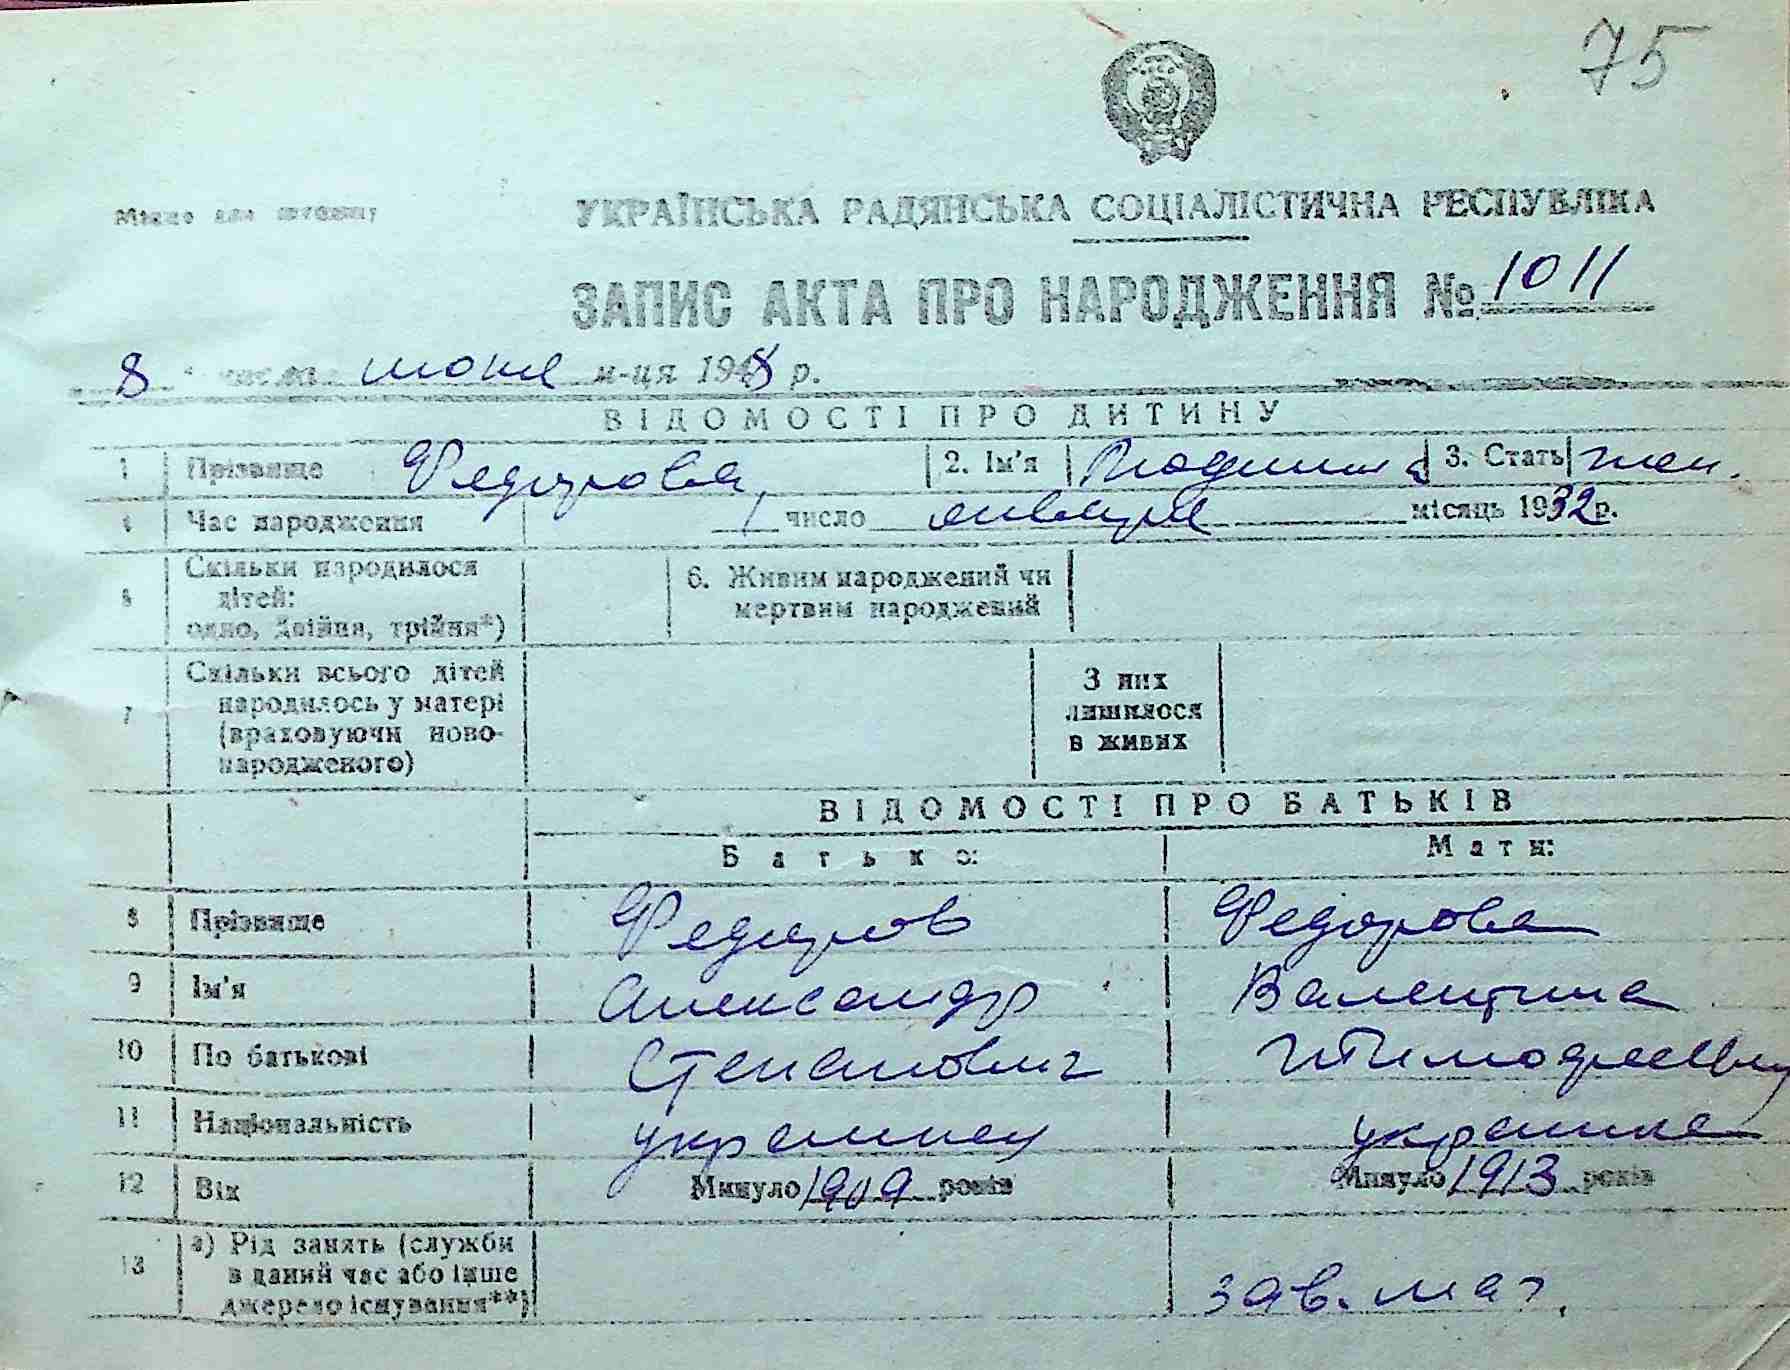 75
Місце для штампу
УКРАЇНСЬКА РАДЯНСЬКА СОЦІАЛІСТИЧНА РЕСПУБЛІКА
ЗАПИС АКТА ПРО НАРОДЖЕННЯ № 1011
8 числа июня м-ця 1948 р.
ВІДОМОСТІ ПРО ДИТИНУ
1 Прізвище Федорова 2. Ім'я Людмила 3. Стать жен.
4 Час народження 1 число января місяць 1932 р.
5 Скільки народилося дітей: одно, двійня, трійня*) 6. Живим народжений чи мертвим народжений
7 Скільки всього дітей народилось у матері (враховуючи новонародженого) З них лишилося в живих
ВІДОМОСТІ ПРО БАТЬКІВ
Батько: Мати:
8 Прізвище Федоров Федорова
9 Ім'я Александр Валентина
10 По батькові Степанович Тимофеевна
11 Національність украинец украинка
12 Вік Минуло 1909 років Минуло 1913 років
13 а) Рід занять (служби в даний час або інше джерело існування**) зав. маг.